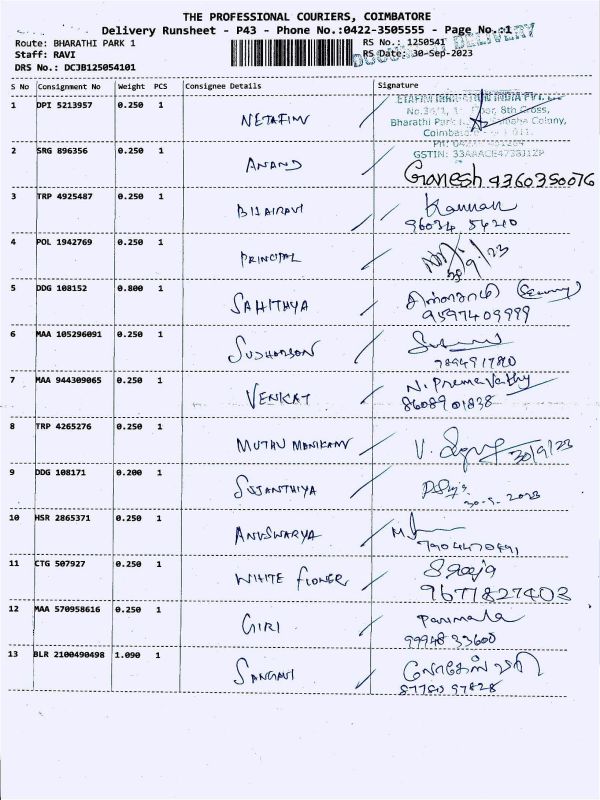 THE PROFESSIONAL COURIERS, COIMBATORE
Delivery Runsheet - P43 - Phone No.:0422-3505555 - Page No.:1
Route: BHARATHI PARK 1
RS No.: 1250541
Staff: RAVI
RS Date: 30-Sep-2023
DRS No.: DCJB125054101
DELIVERY
S No Consignment No Weight PCS Consignee Details Signature
1 DPI 5213957 0.250 1 NETAFIM
No.36/1, Floor, 8th Cross,
Bharathi Park Colony,
2 SRG 896356 0.250 1 ANAND
GSTIN: 33AAACE4738J1ZP
Ganesh 9360350076
3 TRP 4925487 0.250 1 BIJAIRAVI Kannan
96034 54210
4 POL 1942769 0.250 1 PRINCIPAL 30/9/23
5 DDG 108152 0.800 1 SAHITHYA
9597409999
6 MAA 105296091 0.250 1 SUDHARSON
7 MAA 944309065 0.250 1 VENKAT N. Premavathy
8608901838
8 TRP 4265276 0.250 1 MUTHU MANIKAM V. 30/9/23
9 DDG 108171 0.200 1 SUJANTHIYA
30-9-2023
10 HSR 2865371 0.250 1 ANUSWARYA M.
7904470491
11 CTG 507927 0.250 1 WHITE FLOWER Saroja
9677827403
12 MAA 570958616 0.250 1 GIRI Parimala
99948 33600
13 BLR 2100490498 1.090 1 SANGAVI
87780 97828